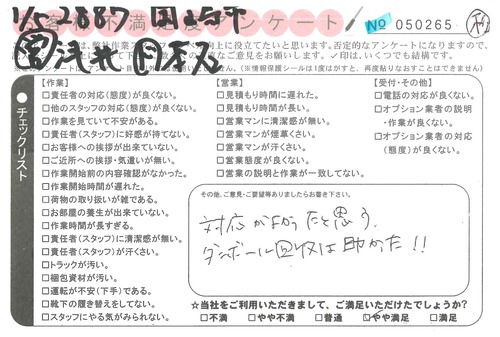 お客様不満足度アンケート
№ 050265
☆当社をご利用いただきまして、ご満足いただけたでしょうか?
□不満 □やや不満 □普通 ☑やや満足 □満足
チェックリスト
【作業】
□責任者の対応(態度)が良くない。
□他のスタッフの対応(態度)が良くない。
□作業を見ていて不安がある。
□責任者(スタッフ)に好感が持てない。
□お客様への挨拶が出来ていない。
□ご近所への挨拶・気遣いが無い。
□作業開始前の内容確認がなかった。
□作業開始時間が遅れた。
□荷物の取り扱いが雑である。
□お部屋の養生が出来ていない。
□作業時間が長すぎる。
□責任者(スタッフ)に清潔感が無い。
□責任者(スタッフ)が汗くさい。
□トラックが汚い。
□梱包資材が汚い。
□運転が不安(下手)である。
□靴下の履き替えをしてない。
□スタッフにやる気がみられない。
【営業】
□見積もり時間に遅れた。
□見積もり時間が長い。
□営業マンに清潔感が無い。
□営業マンが煙草くさい。
□営業マンが汗くさい。
□営業態度が良くない。
□営業の説明と作業が一致してない。
【受付・その他】
□電話の対応が良くない。
□オプション業者の説明・作業が良くない。
□オプション業者の対応(態度)が良くない。
その他、ご意見・ご要望等ありましたらお書き下さい。
対応がよかったと思う。
ダンボール回収は助かった!!